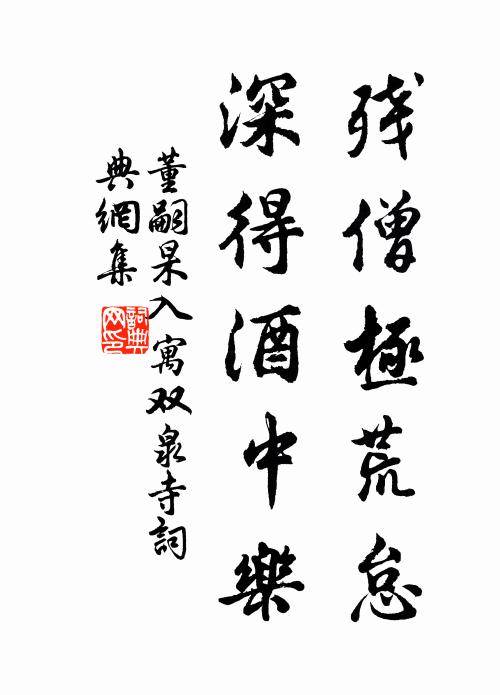 残僧極荒怠
深得酒中樂
董嗣杲入寓双泉寺詞
典網集
詞典
网印